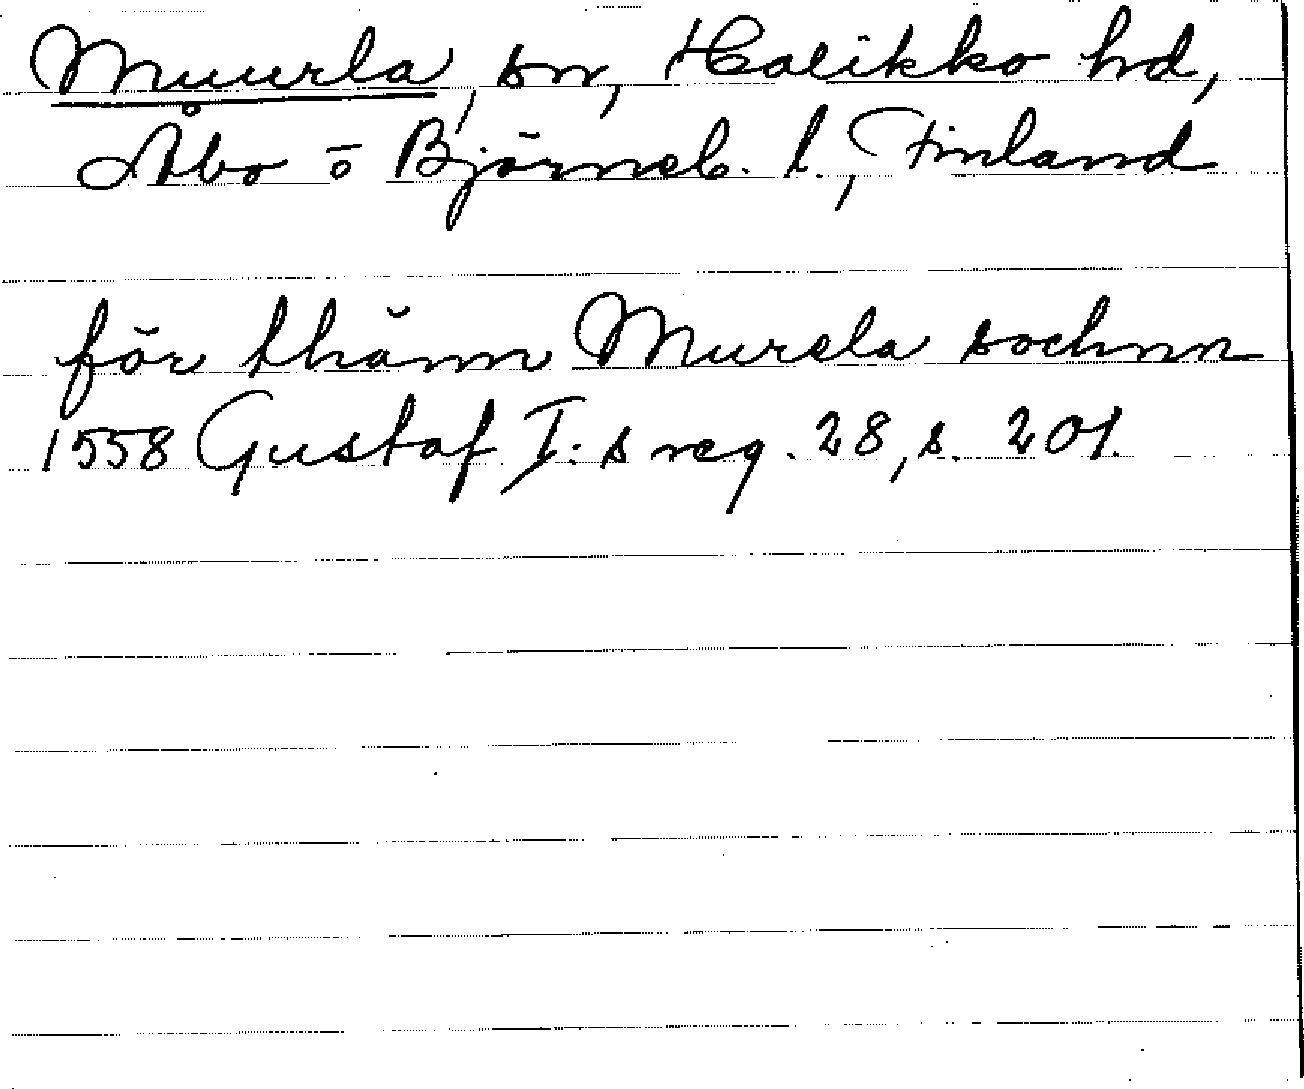 Muurla, sn, Halikko hd,
Åbo o Björneb. l., Finland
för thänn Murela sochnn
1558 Gustaf I:s reg. 28, s. 201.